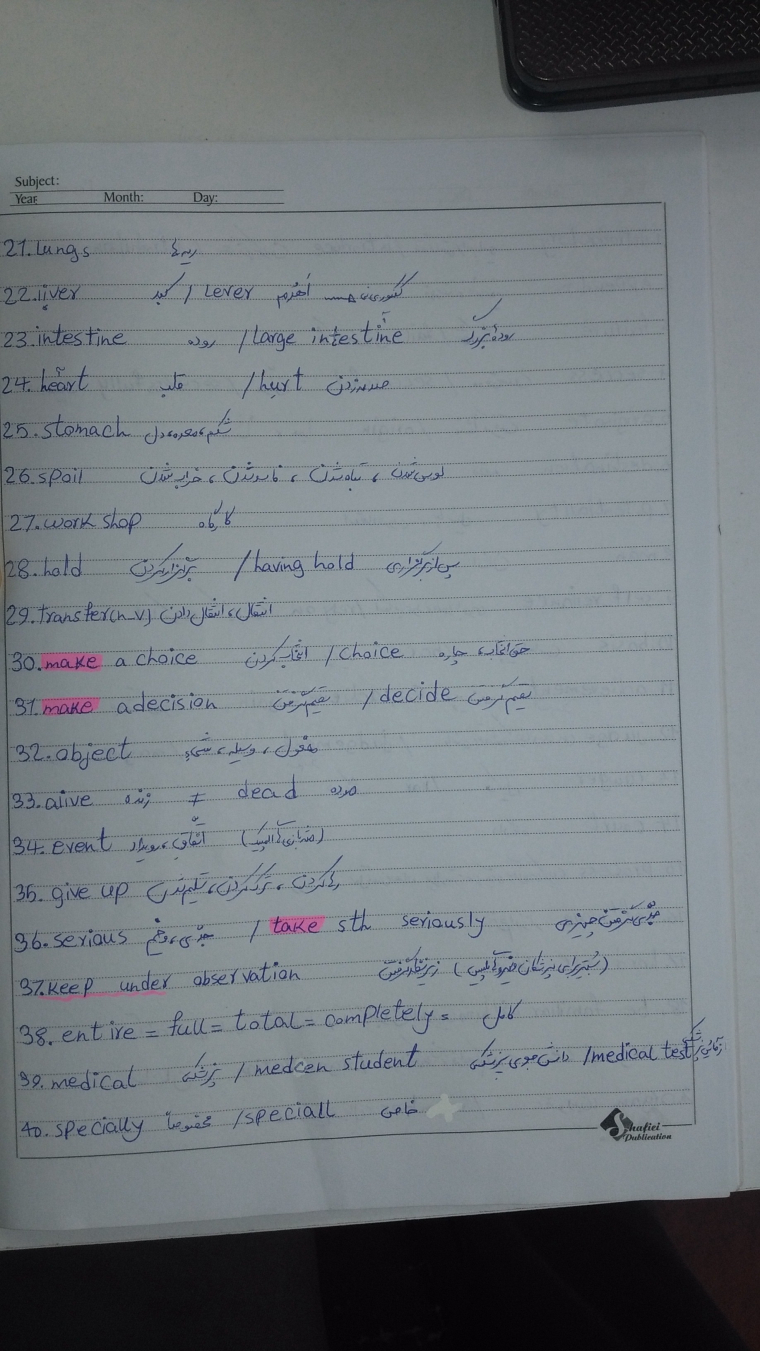 Subject:
Year Month: Day:
21. lungs ریه ها
22. liver کبد / Lever اهرم
23. intestine روده / large intestine رودهٔ بزرگ
24. heart قلب / hurt صدمه زدن
25. stomach شکم، معده، دل
26. spoil خراب شدن، نابود شدن، تباه شدن، لوس شدن
27. work shop کارگاه
28. hold برگزار کردن / having hold پس از برگزاری
29. transfer (n_v) انتقال، انتقال دادن
30. make a choice انتخاب کردن / choice حق انتخاب، چاره
31. make a decision تصمیم گرفتن / decide تصمیم گرفتن
32. object مفعول، وسیله، شیء
33. alive زنده ≠ dead مرده
34. event اتفاق، رویداد
35. give up رها کردن، ترک کردن، تسلیم شدن
36. serious جدّی، وخیم / take sth seriously جدّی گرفتن چیزی
37. keep under observation زیر نظر گرفتن
38. entire = full = total = completely = کامل
39. medical پزشکی / medcen student دانش جوی پزشکی / medical test
40. specially مخصوصاً / speciall خاص
Shafiei
Publication